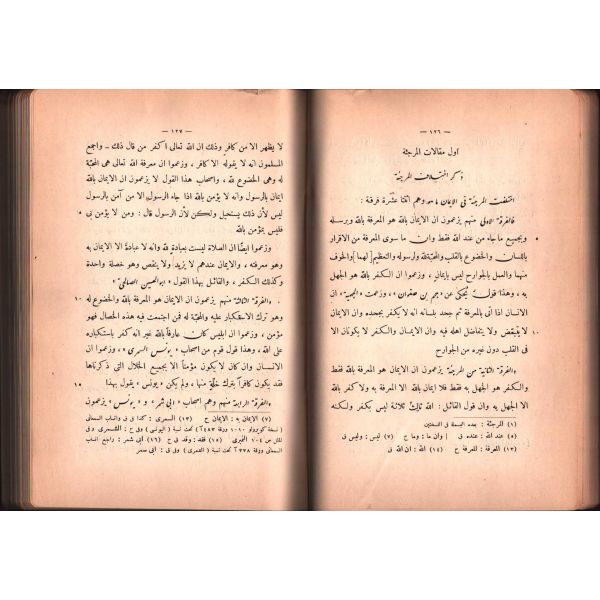 — ١٢٦ —
اول مقالات المرجئة
ذكر اختلاف المرجئة
اختلفت المرجئة فى الايمان ما هو وهم اثنتا عشرة فرقة :
فالفرقة الاولى منهم يزعمون ان الايمان بالله هو المعرفة بالله وبرسله
وبجميع ماجاء من عند الله فقط وان ما سوى المعرفة من الاقرار ٥
باللسان والخضوع بالقلب والمحبة لله ولرسوله والتعظيم لهما والخوف
منهما والعمل بالجوارح ليس بايمان ، وزعموا ان الكفر بالله هو الجهل
به ، وهذا قول يُحكى عن « جهم بن صفوان » ، وزعمت « الجهمية » ان
الانسان اذا أتى بالمعرفة ثم جحد بلسانه انه لا يكفر بجحده وان الايمان
لا يتبعّض ولا يتفاضل اهله فيه وان الايمان والكفر لا يكونان الا ١٠
فى القلب دون غيره من الجوارح
والفرقة الثانية من المرجئة يزعمون ان الايمان هو المعرفة بالله فقط
والكفر هو الجهل به فقط فلا ايمان بالله الا المعرفة به ولا كفر بالله
الا الجهل به وان قول القائل : الله ثالث ثلاثة ليس بكفر ولكنه
(١) المرجئة : بعده البسملة فى النسختين
(٥) عند الله : عنده ق | وان ما : وما ح (٧) ليس : وليس ق
(١٣) المعرفة : للمعرفة ح (١٤) الله : ان الله ق
— ١٢٧ —
لا يظهر الا من كافر وذلك ان الله تعالى اكفر من قال ذلك - واجمع
المسلمون انه لا يقوله الا كافر ، وزعموا ان معرفة الله تعالى هى المحبّة
له وهى الخضوع لله ، واصحاب هذا القول لا يزعمون ان الايمان بالله
ايمان بالرسول وانه لا يؤمن بالله اذا جاء الرسول الا من آمن بالرسول
ليس لأن ذلك يستحيل ولكن لأن الرسول قال : ومن لا يؤمن بى ٥
فليس بمؤمن بالله
وزعموا ايضًا ان الصلاة ليست بعبادة لله وانه لا عبادة الا الايمان به
وهو معرفته ، والايمان عندهم لا يزيد ولا ينقص وهو خصلة واحدة
وكذلك الكفر ، والقائل بهذا القول « ابو الحسين الصالحى »
والفرقة الثالثة منهم يزعمون ان الايمان هو المعرفة بالله والخضوع له ١٠
وهو ترك الاستكبار عليه والمحبّة له فمن اجتمعت فيه هذه الخصال فهو
مؤمن ، وزعموا ان ابليس كان عارفًا بالله غير انه كفر باستكباره
على الله ، وهذا قول قوم من اصحاب « يونس السمرى » ، وزعموا ان
الانسان وان كان لا يكون مؤمنًا الا بجميع الخلال التى ذكرناها
فقد يكون كافرًا بترك خلّة منها ، ولم يكن « يونس » يقول بهذا ١٥
والفرقة الرابعة منهم وهم اصحاب « ابى شمر » و « يونس » يزعمون
(٧) الايمان به : الايمان ح (١٣) السمرى : كذا فى ق وانساب السمعانى
(١٥) فقد : وقد فى ح (١٦) أبى شمر : راجع انساب
السمعانى ورقة ٣٣٨ آ تحت نسبة ( الشمرى )